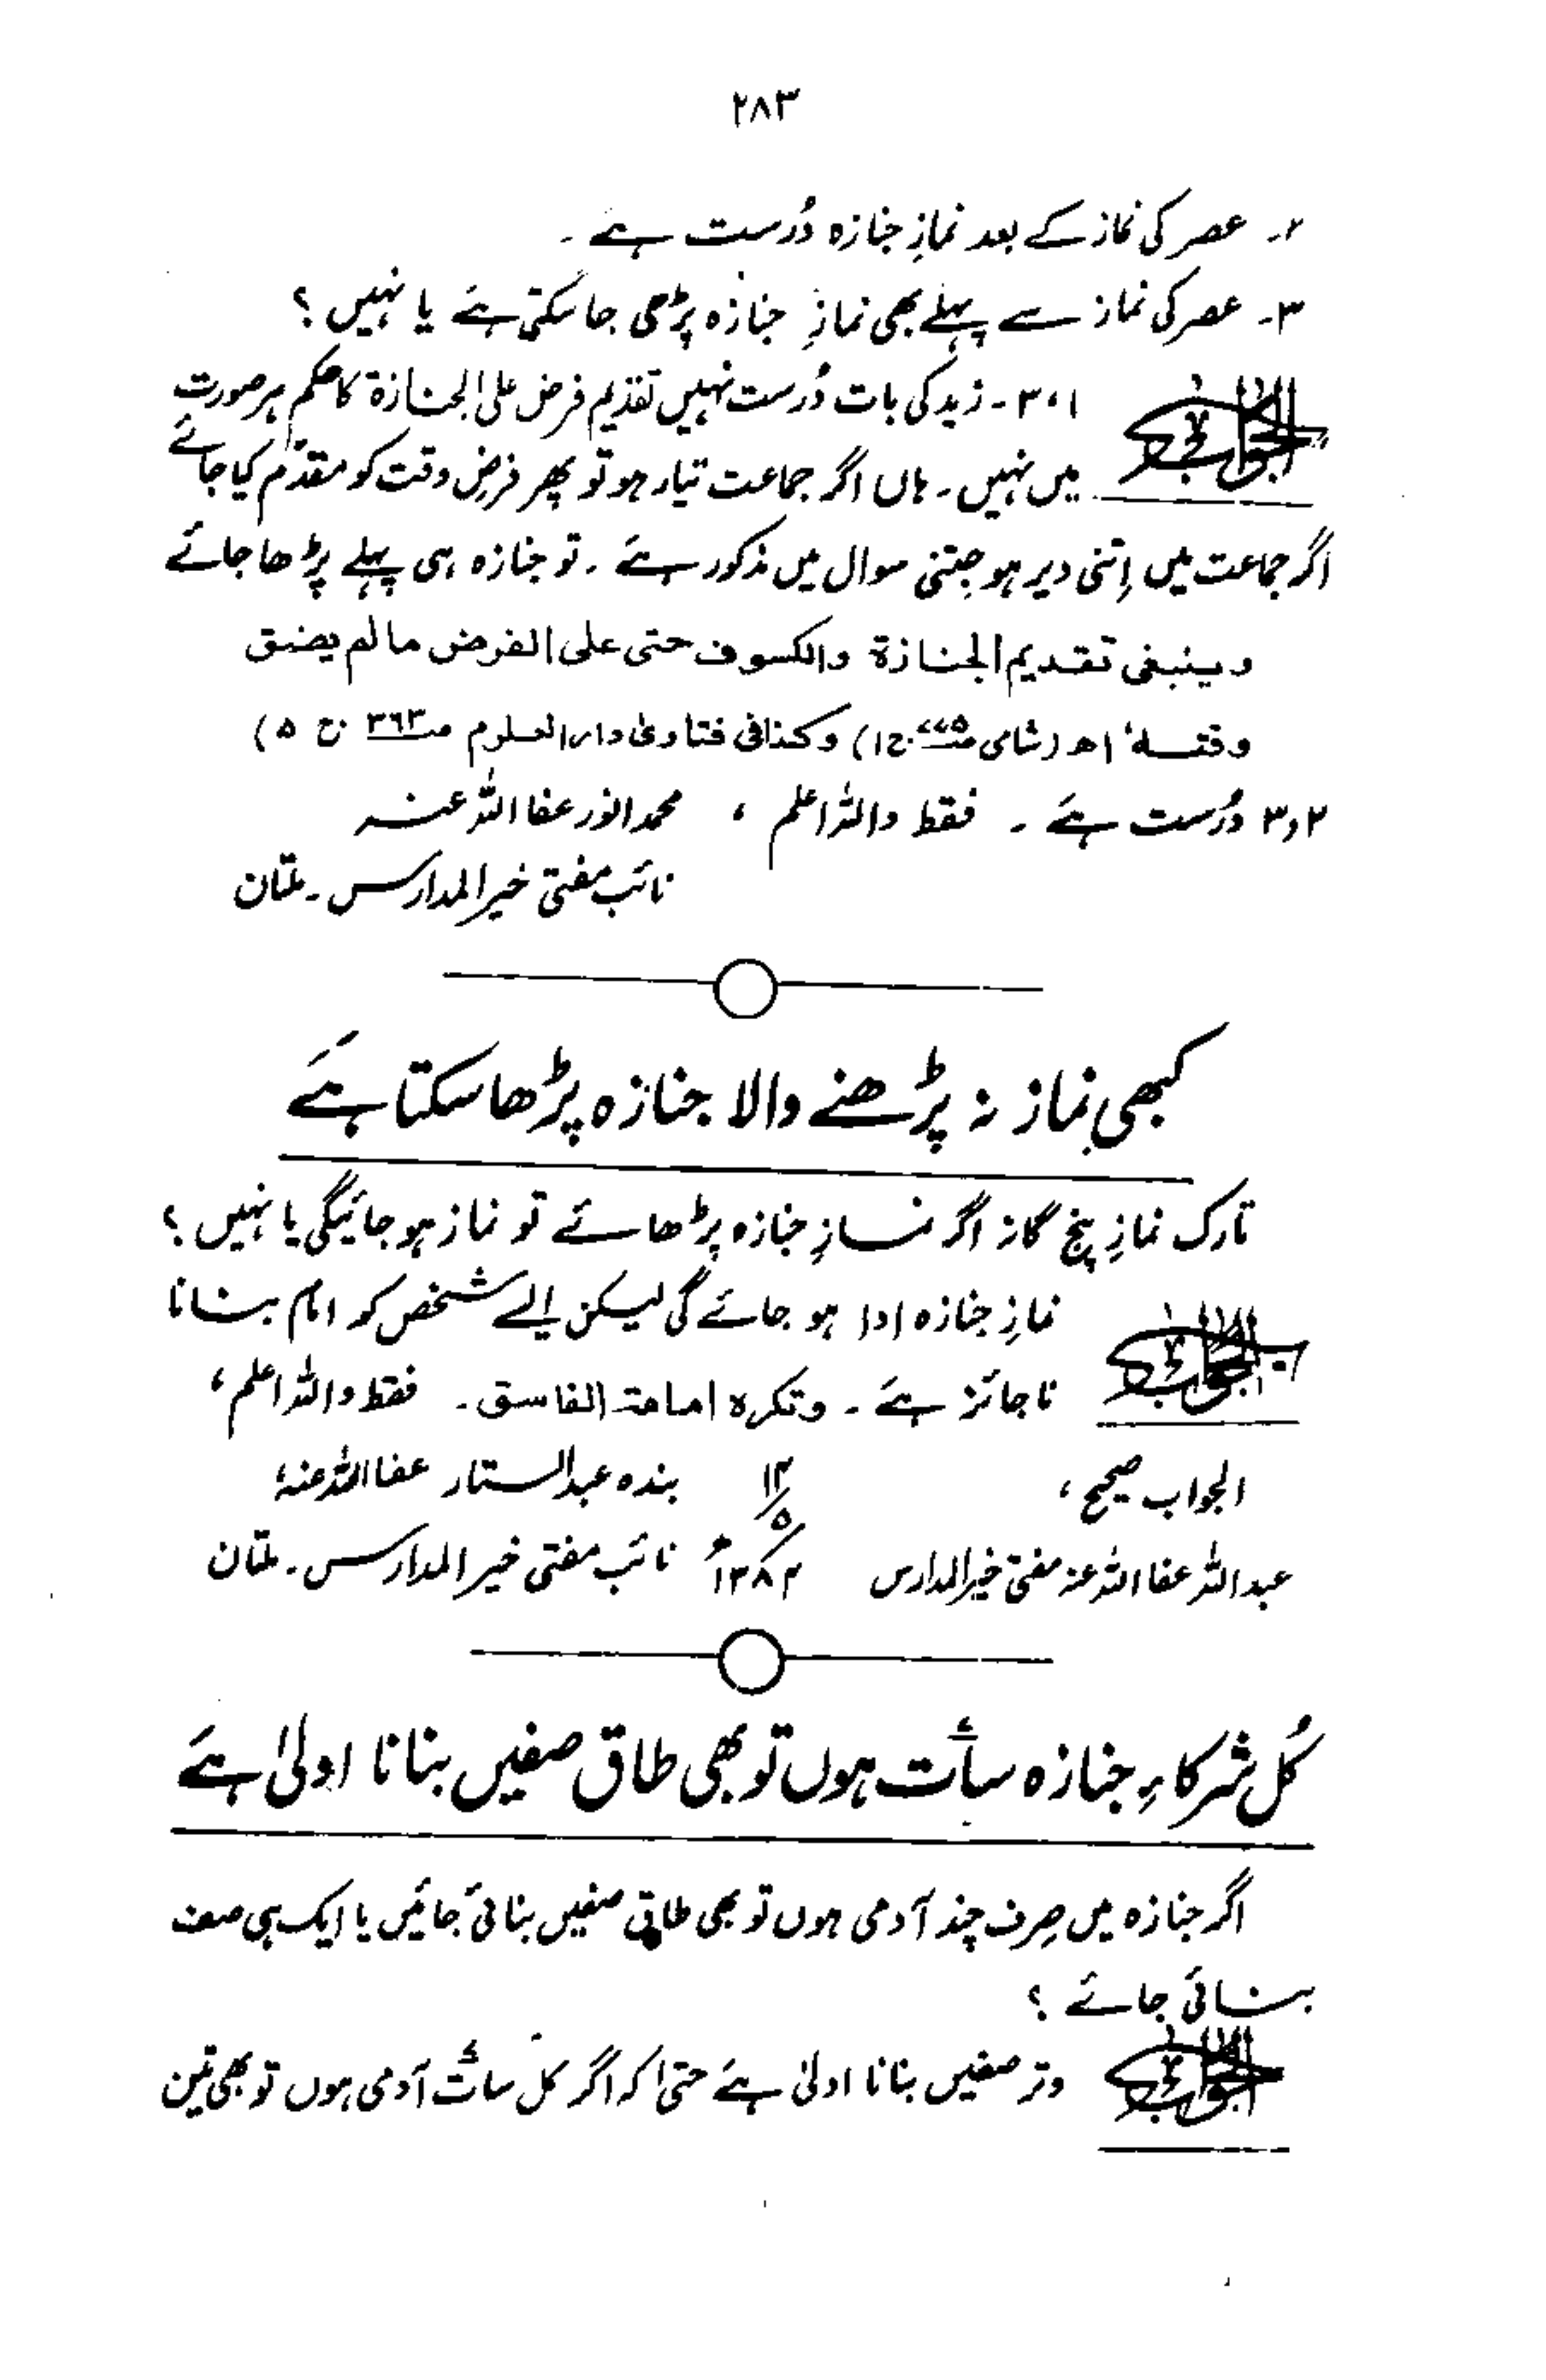 ۲۸۳
۲۔ عصر کی نماز کے بعد نمازِ جنازہ دُرست ہے ۔
۳۔ عصر کی نماز سے پہلے بھی نمازِ جنازہ پڑھی جاسکتی ہے یا نہیں ؟
الجواب
۱، ۳۔ زید کی بات دُرست نہیں تقدیم فرض علی الجنازۃ کا حکم ہر صورت
میں نہیں ۔ ہاں اگر جماعت تیار ہو تو پھر فرضِ وقت کو مقدّم کیا جائے
اگر جماعت میں اِتنی دیر ہو جِتنی سوال میں مذکور ہے ۔ تو جنازہ ہی پہلے پڑھا جائے
وینبغی تقدیم الجنازۃ والکسوف حتی علی الفرض مالم یضق
وقتہ‘ اھ (شامی ج ۱) وکذافی فتاویٰ دارالعلوم ص۳۶۳ ج ۵)
۲و۳ دُرست ہے ۔ فقط واللہ اعلم ، محمد انور عفا اللہ عنہ
نائب مفتی خیر المدارس ۔ ملتان
کبھی نماز نہ پڑھنے والا جنازہ پڑھا سکتا ہے
تارک نمازِ پنج گانہ اگر نمازِ جنازہ پڑھائے تو نماز ہو جائیگی یا نہیں ؟
الجواب
نمازِ جنازہ ادا ہو جائے گی لیکن ایسے شخص کو امام بنانا
ناجائز ہے ۔ وتکرہ امامۃ الفاسق ۔ فقط واللہ اعلم ،
الجواب صحیح ، ۱۲/۵ بندہ عبدالستار عفا اللہ عنہ ،
عبداللہ عفا اللہ عنہ مفتی خیر المدارس ۱۳۸۲ھ نائب مفتی خیر المدارس ۔ ملتان
کُل شرکاءِ جنازہ سات ہوں تو بھی طاق صفیں بنانا اولیٰ ہے
اگر جنازہ میں صِرف چند آدمی ہوں تو بھی طاق صفیں بنائی جائیں یا ایک ہی صف
بنائی جائے ؟
الجواب
وتر صفیں بنانا اولیٰ ہے حتیٰ کہ اگر کل سات آدمی ہوں تو بھی تین